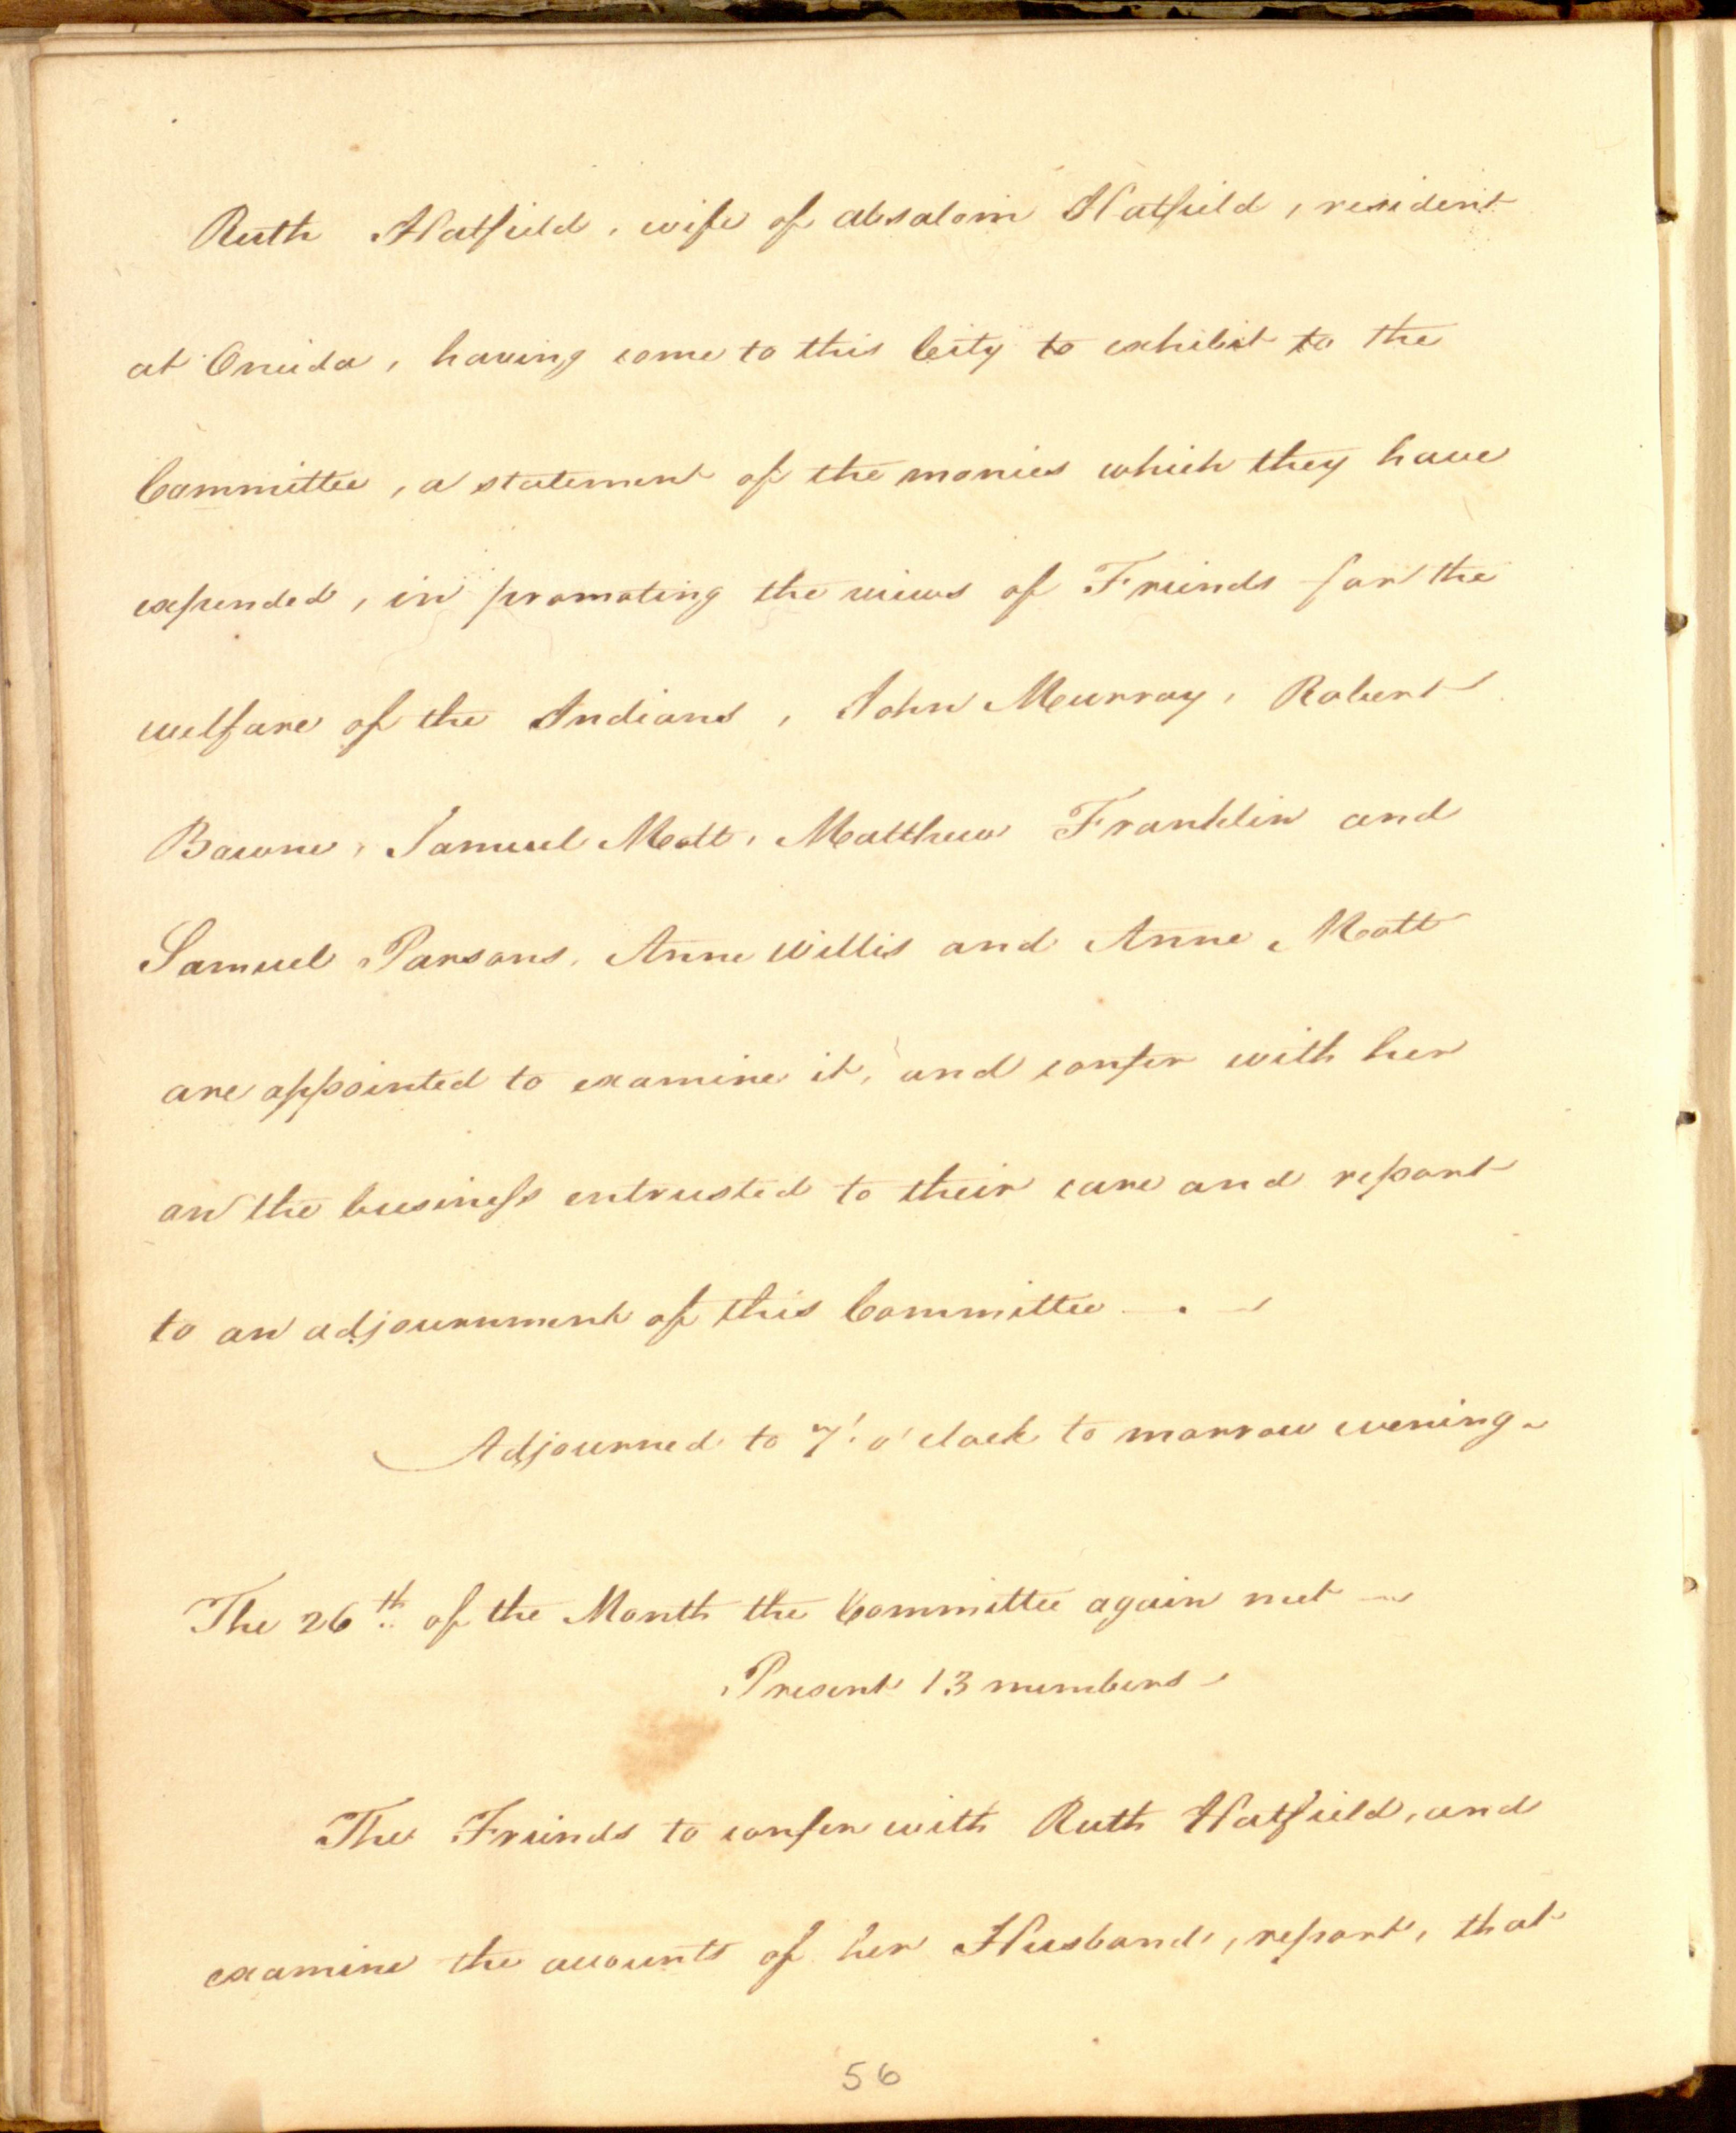 Ruth Hatfield, wife of Absalom Hatfield, resident
at Oneida, having come to this City to exhibit to the
Committee, a statement of the monies which they have
expended, in promoting the views of Friends for the
welfare of the Indians, John Murray, Robert
Bowne, Samuel Mott, Matthew Franklin and
Samuel Parsons, Anne Willis and Anne Mott
are appointed to examine it, and confer with her
on the business entrusted to their care and report
to an adjournment of this Committee —.—
Adjourned to 7 o'clock to morrow evening-
The 26th of the Month the Committee again met —
Present 13 members -
The Friends to confer with Ruth Hatfield, and
examine the accounts of her Husband, report, that
56